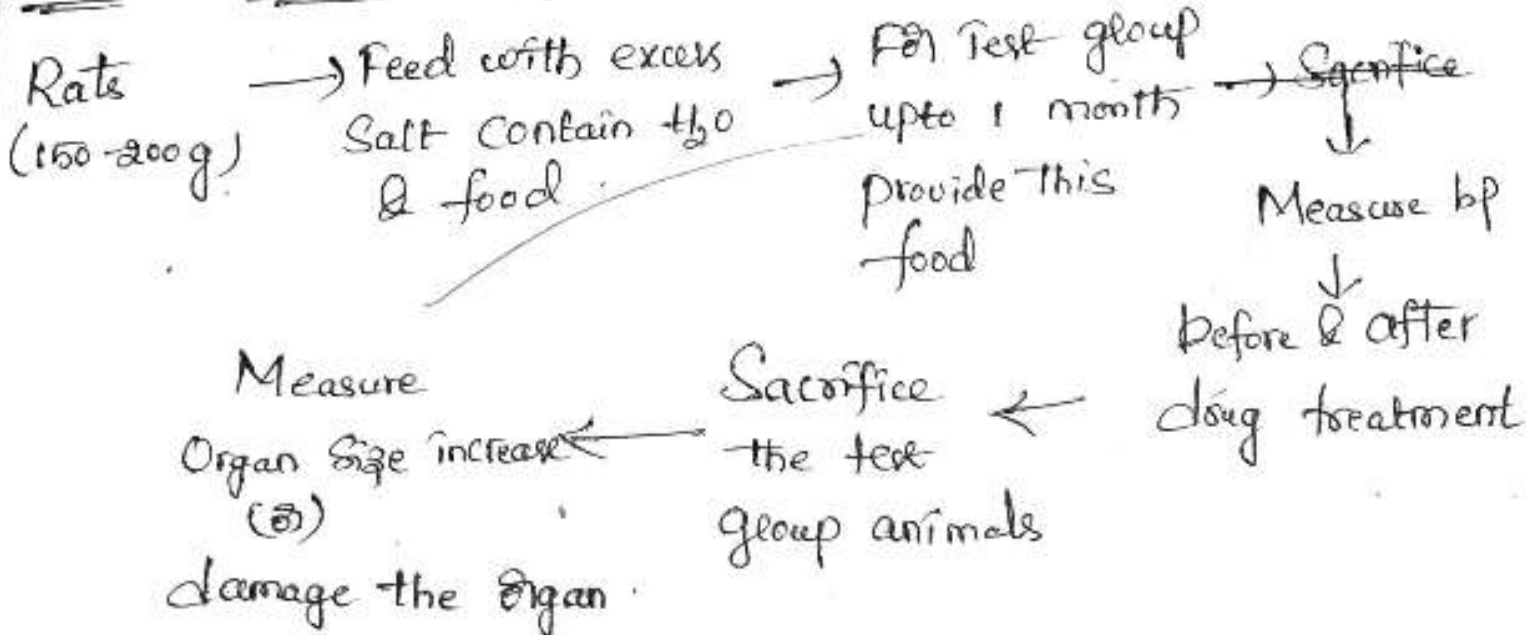 Rats
(150-200g)
→ Feed with excess
Salt contain H₂O
& food
→ For Test group
upto 1 month
provide this
food
→ Sacrifice
↓
Measure bp
↓
before & after
drug treatment
← Sacrifice
the test
group animals
← Measure
Organ size increase
(or)
damage the organ.